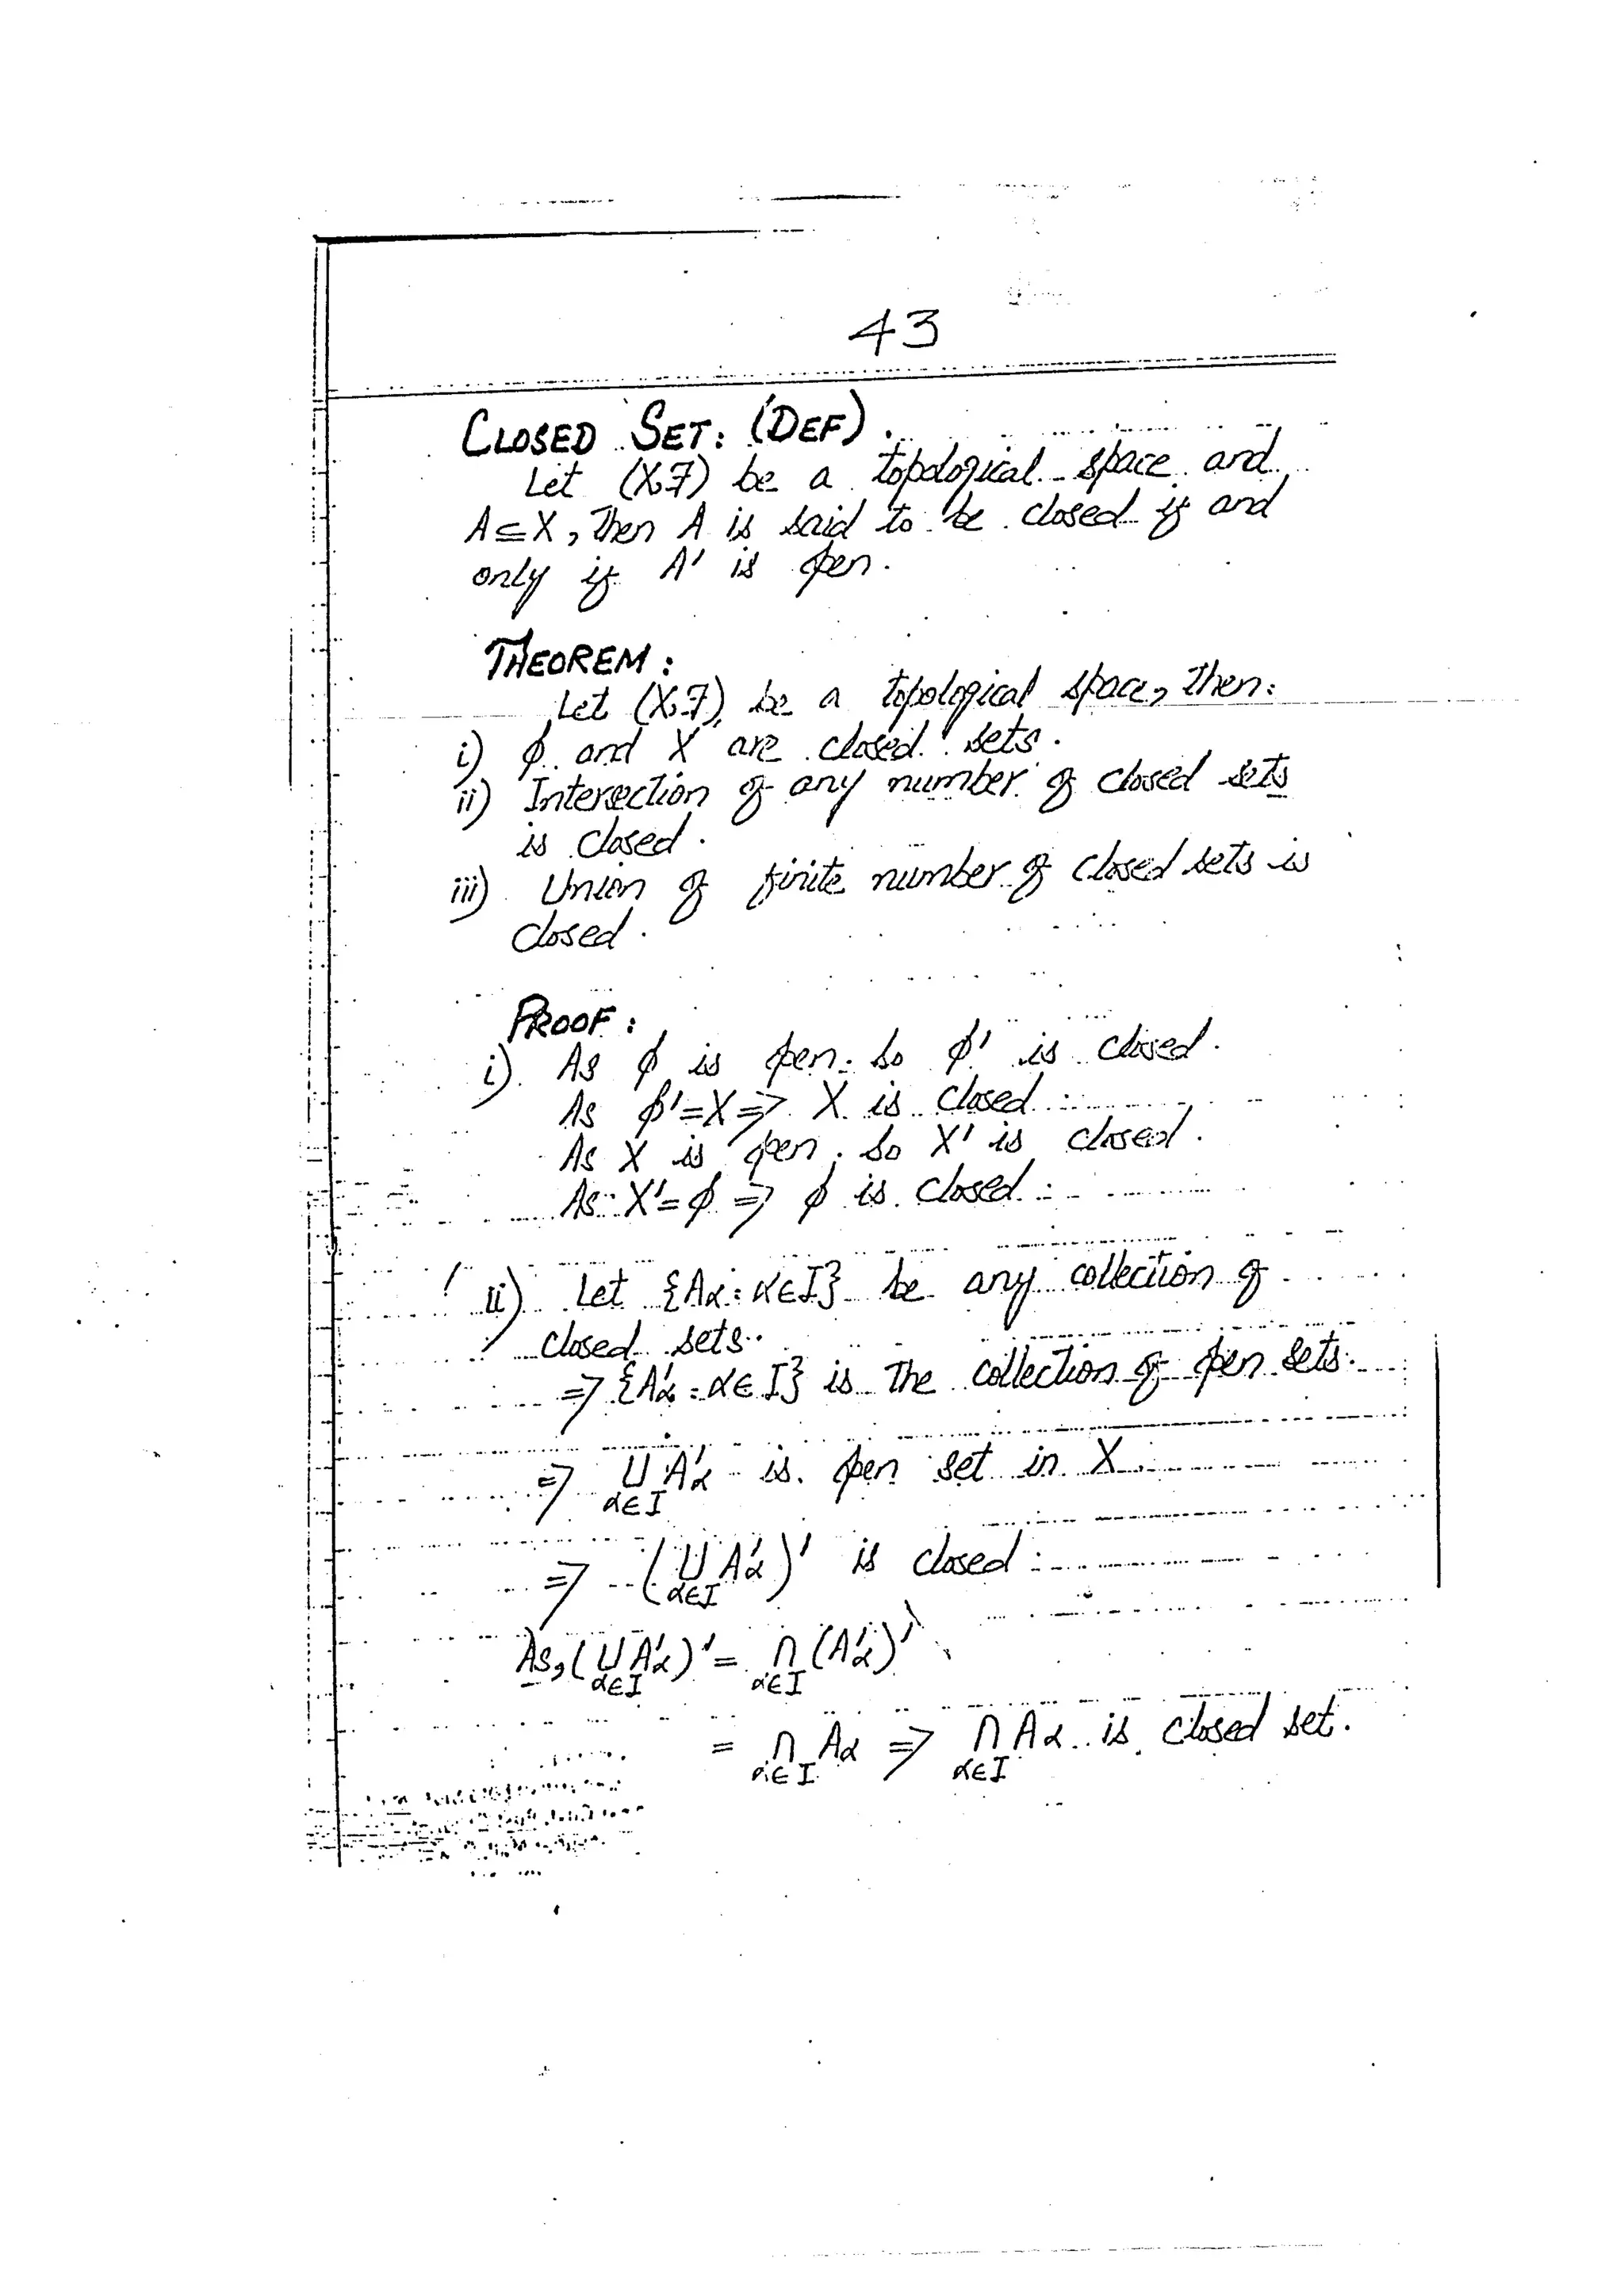 43
CLOSED SET: (DEF).
Let (X,F) be a topological space and
A⊆X, Then A is said to be closed if and
only if A' is open.
THEOREM:
Let (X,F) be a topological space, Then:
i) ϕ and X are closed sets.
ii) Intersection of any number of closed sets
is closed.
iii) Union of finite number of closed sets is
closed.
PROOF:
i). As ϕ is open. So ϕ' is closed.
As ϕ'=X ⇒ X is closed.
As X is open. So X' is closed.
As X'=ϕ ⇒ ϕ is closed.
ii) Let {Aα : α∈I} be any collection of
closed sets.
⇒ {A'α : α∈I} is The collection of open sets.
⇒ ∪ A'α is open set in X.
α∈I
⇒ (∪ A'α)' is closed.
α∈I
As, (∪ A'α)' = ∩ (A'α)'
α∈I α∈I
= ∩ Aα ⇒ ∩ Aα is closed set.
α∈I α∈I